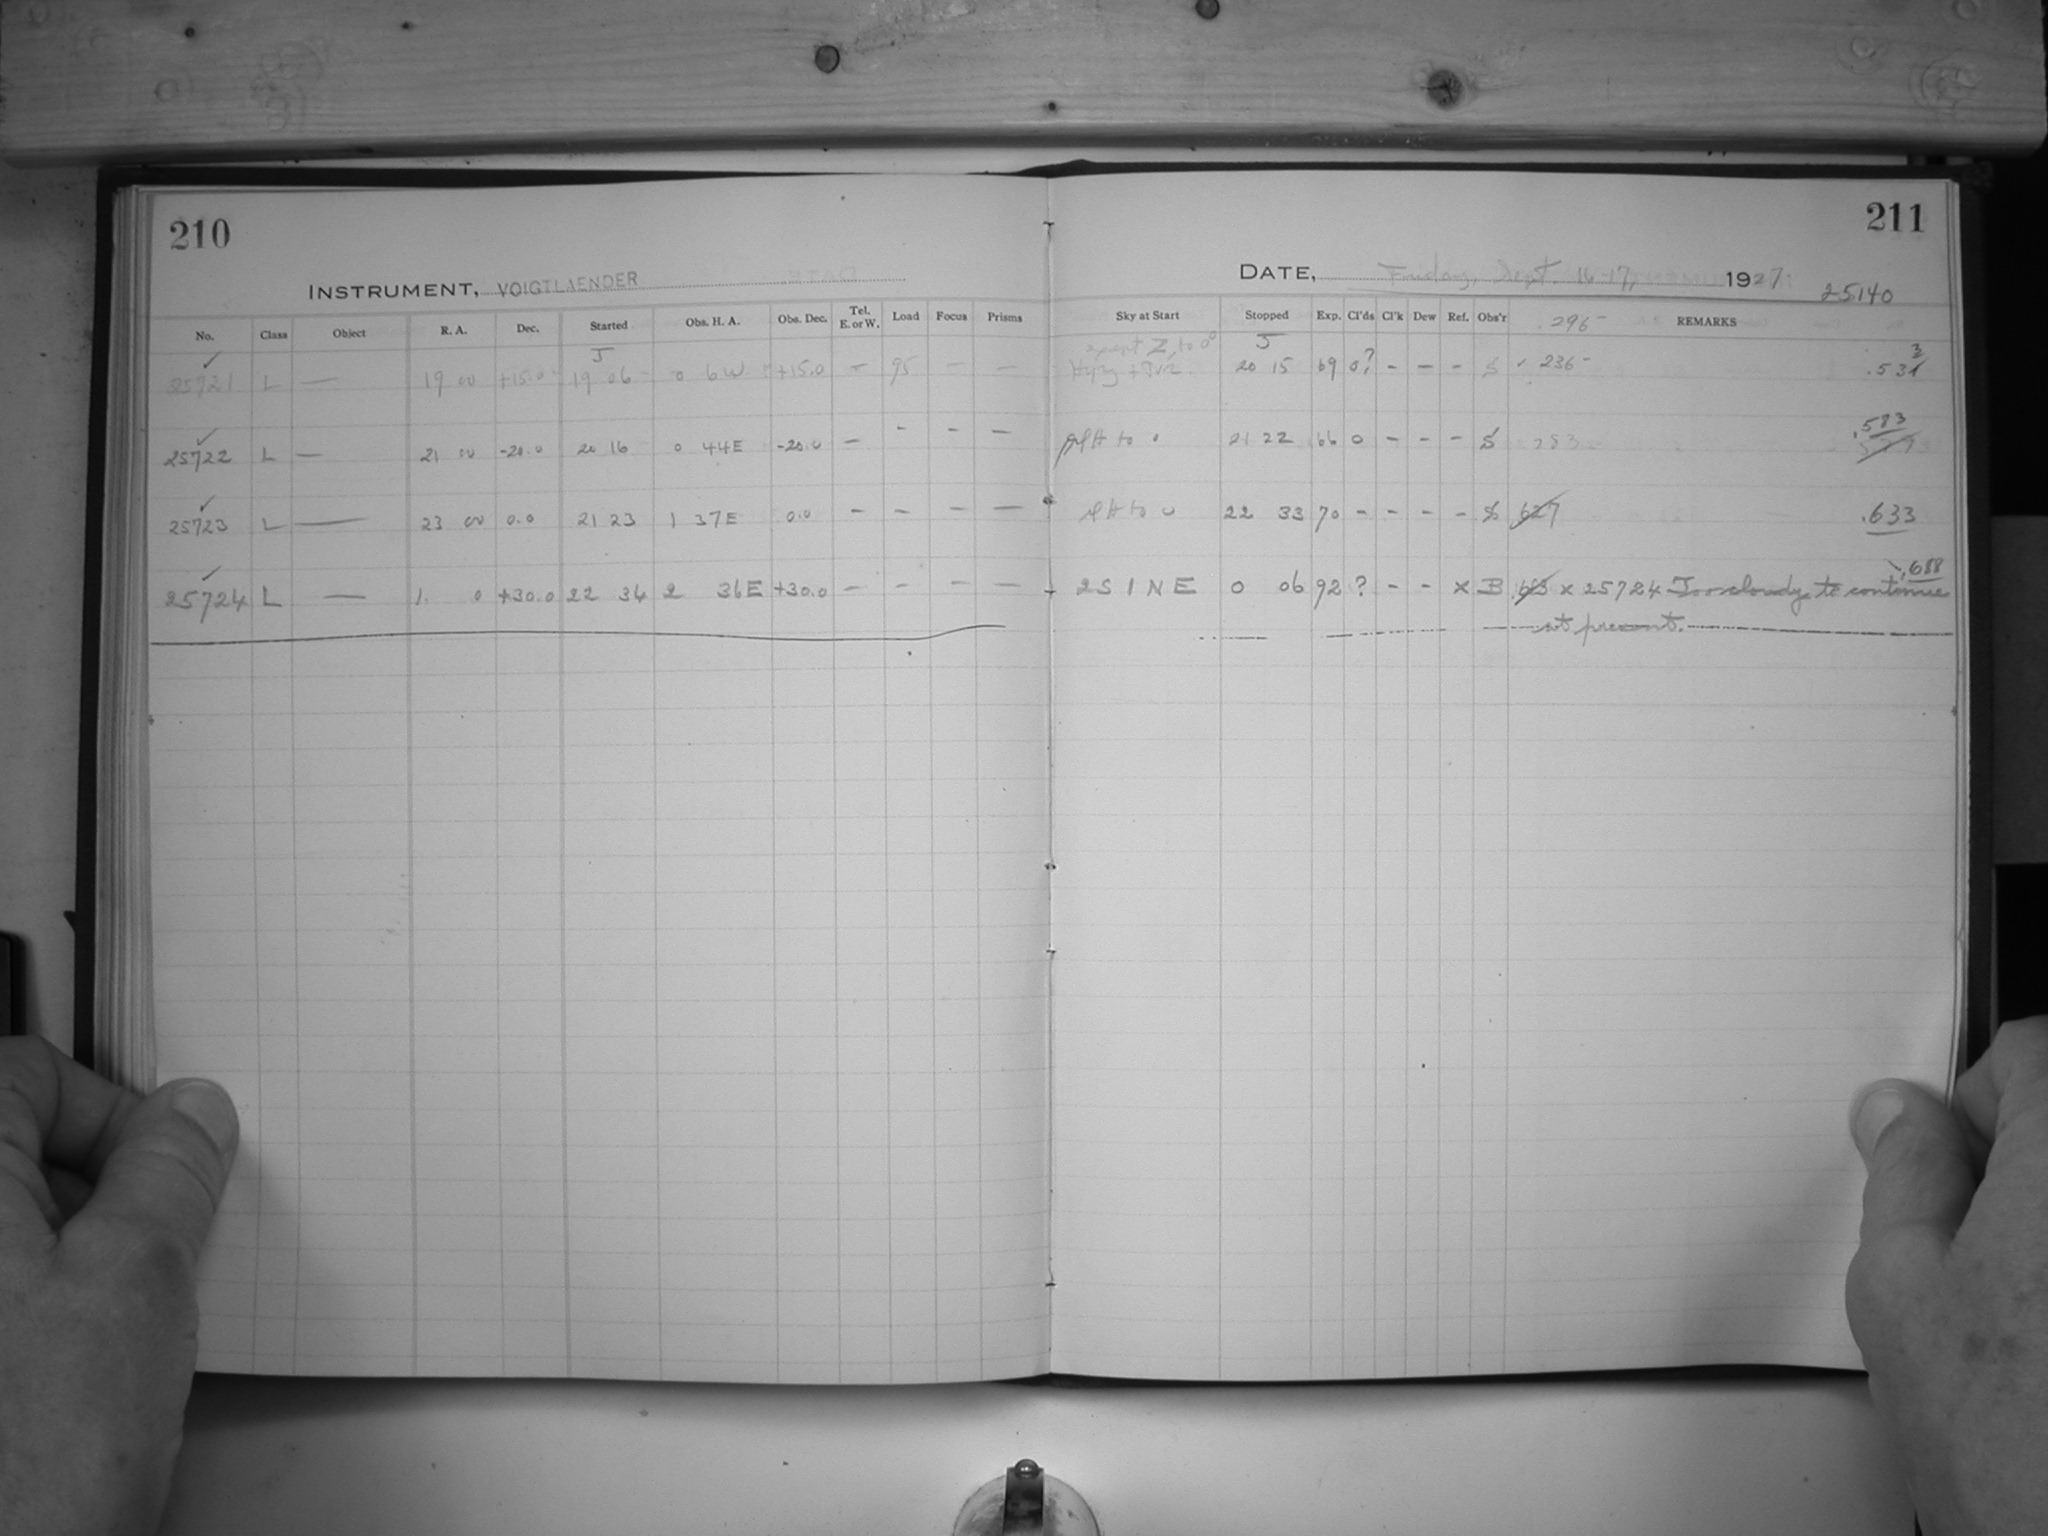 210
INSTRUMENT, VOIGTLAENDER
No. Class Object R. A. Dec. Started Obs. H. A. Obs. Dec. Tel. E. or W. Load Focus Prisms
J
25721 L — 19 00 +15.0 19 06 0 6W +15.0 — 95 — —
25722 L — 21 00 -20.0 20 16 0 44E -20.0 — - - —
25723 L — 23 00 0.0 21 23 1 37E 0.0 - - - —
25724 L — 1. 0 +30.0 22 34 2 36E +30.0 — - - —
211
DATE, Friday, Sept. 16-17, 1927
25140
Sky at Start Stopped Exp. Cl'ds Cl'k Dew Ref. Obs'r 296 REMARKS
except Z, to 0° J
20 15 69 0? - - - S 236 .533
to 0 21 22 66 0 - - - S 283 .583
to 0 22 33 70 - - - - S 627 .633
2S 1NE 0 06 92 ? - - x B x 25724 Too cloudy to continue .688
at present.